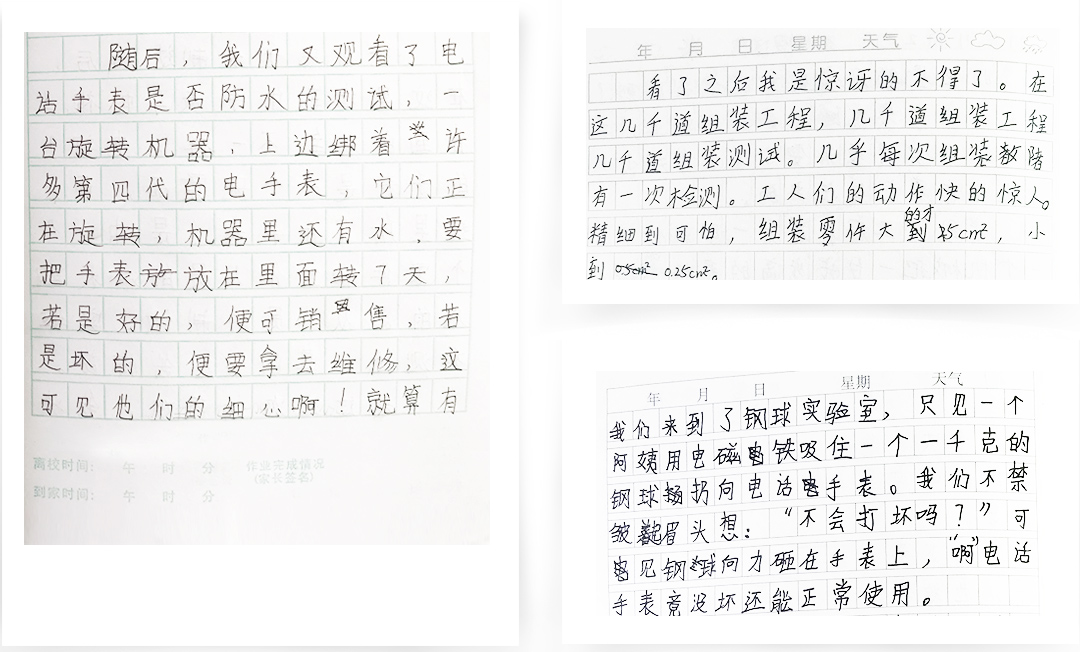 随后，我们又观看了电
话手表是否防水的测试，一
台旋转机器，上边绑着许
多第四代的电手表，它们正
在旋转，机器里还有水，要
把手表放在里面转7天，
若是好的，便可销售，若
是坏的，便要拿去维修，这
可见他们的细心啊！就算有
离校时间： 年 时 分 作业完成情况
（家长签名）
到家时间： 年 时 分
年 月 日 星期 天气
看了之后我是惊讶的不得了。在
这几千道组装工程，几千道组装工程
几千道组装测试。几乎每次组装都陪
有一次检测。工人们的动作快的惊人。
精细到可怕，组装零件大的才到45cm²，小
到0.5cm² 0.25cm²。
年 月 日 星期 天气
我们来到了钢球实验室，只见一个
阿姨用电磁铁吸住一个一千克的
钢球扬扔向电话手表。我们不禁
皱眉头想：“不会打坏吗？”可
见钢球向力砸在手表上，“啊”电话
手表竟没坏还能正常使用。